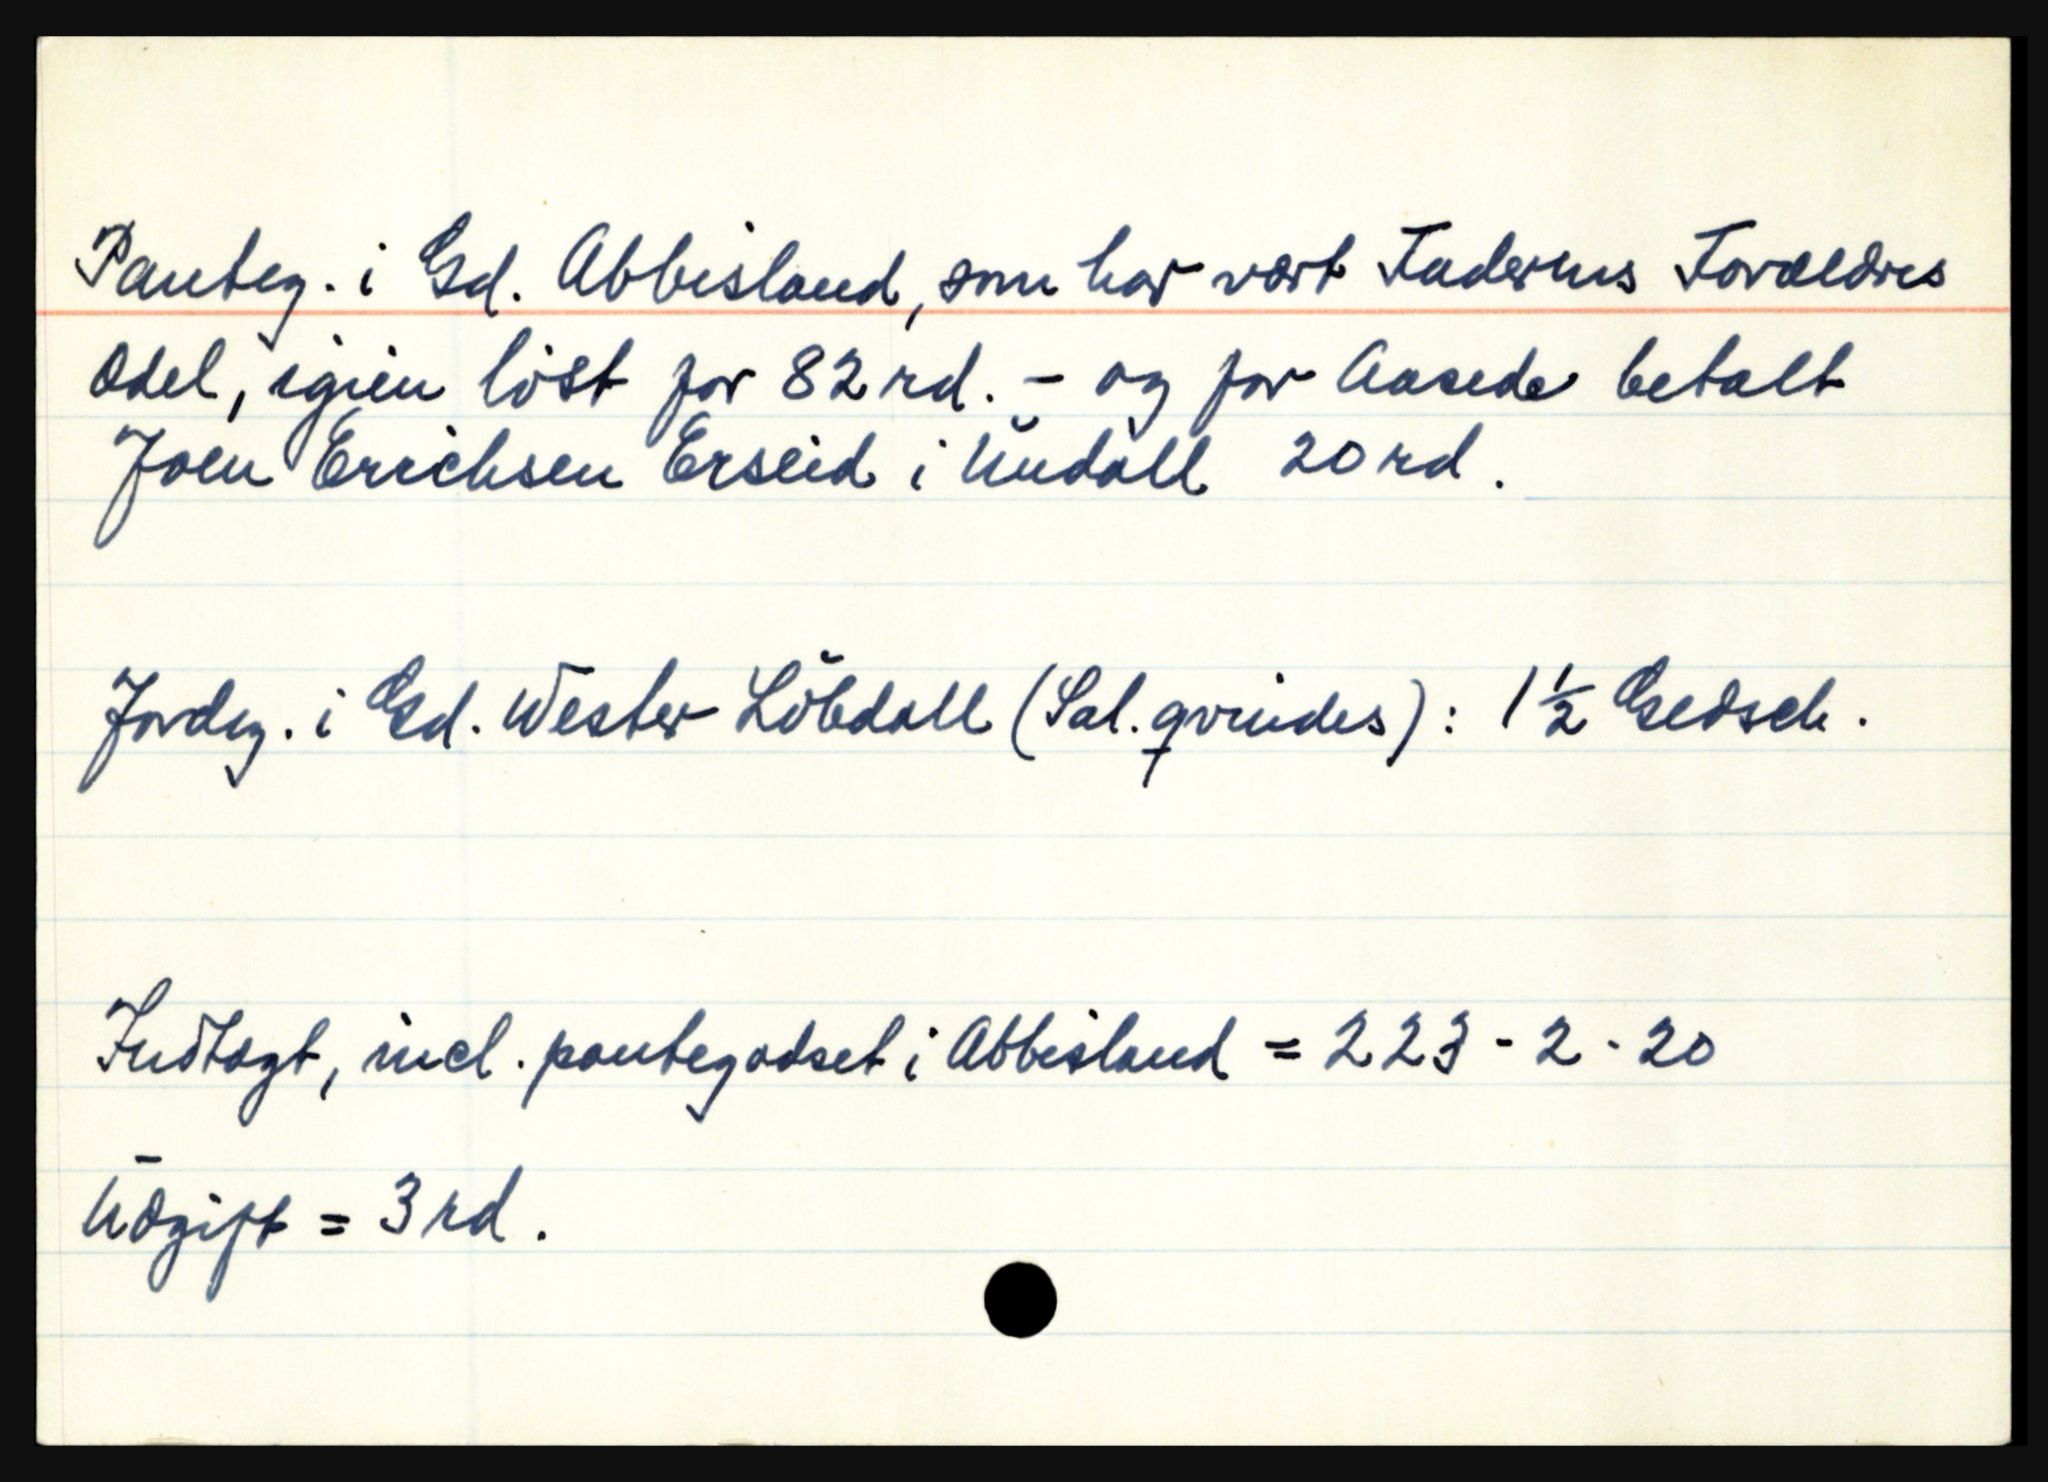 Panteg. i Gd. Abbisland, som har vært Faderens Forældres
Odel, igien løst for 82 rd. - og for Aasede betalt
Joen Erichsen Erseid i Undall 20 rd.
Jordeg. i Gd. Wester Löbdall (Sal. qvindes): 1 1/2 Gedsch.
Indtægt, incl. pantegodset i Abbisland = 223 - 2 - 20
Udgift = 3 rd.